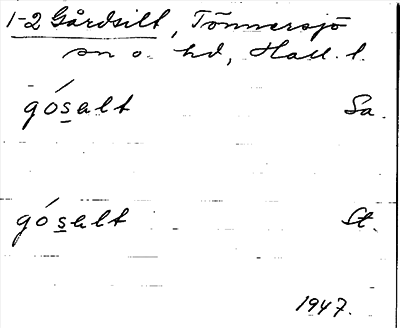 1-2 Gårdsilt, Tönnersjö
sn o. hd, Hall. l.
gósalt Sa.
gósalt St.
1947.